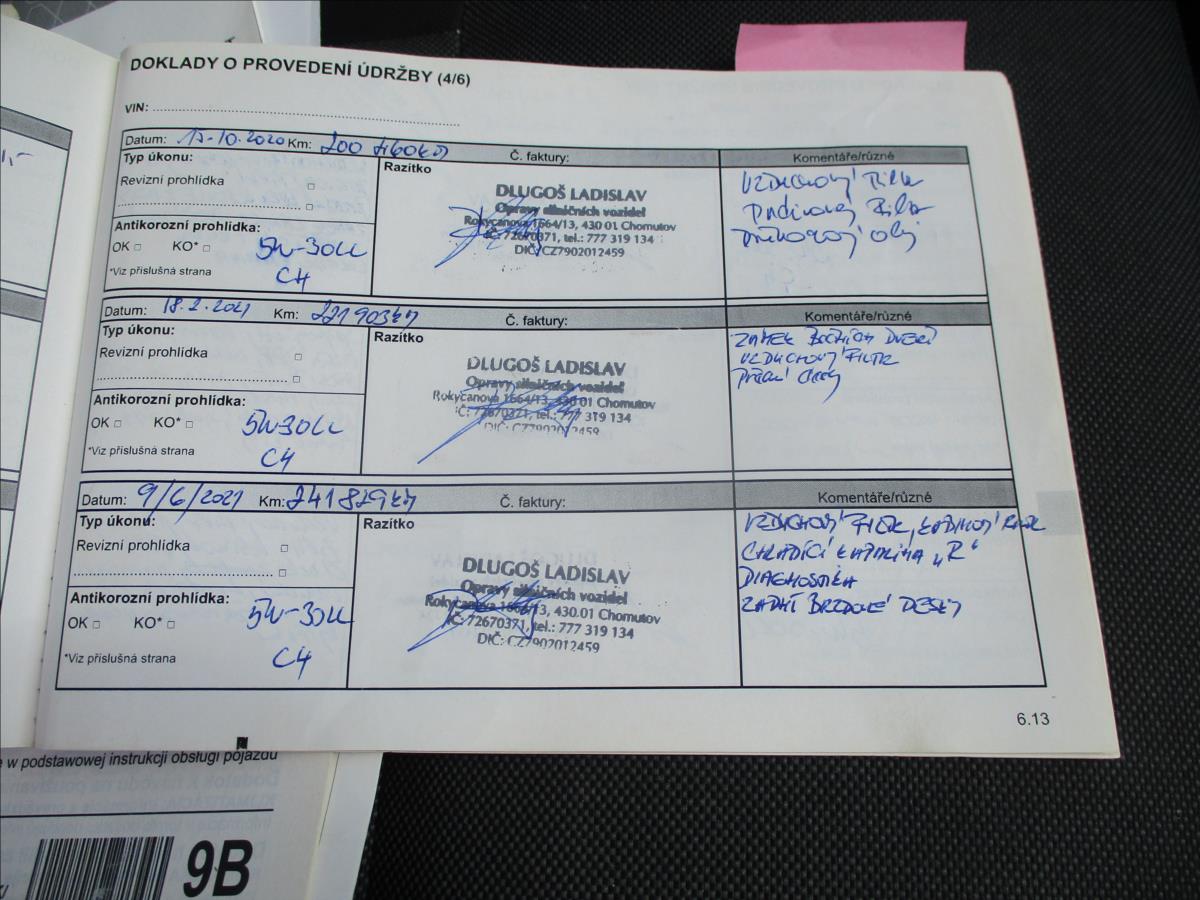 DOKLADY O PROVEDENÍ ÚDRŽBY (4/6)
VIN:
Datum: 15-10.2020 Km: 200 460km Č. faktury: Komentáře/různé
Typ úkonu:
Revizní prohlídka
Antikorozní prohlídka:
OK KO*
5W-30LL
*Viz příslušná strana
C4
Razítko
DLUGOŠ LADISLAV
Opravy silničních vozidel
Rokycanova 1664/13, 430 01 Chomutov
IČ: 72670371, tel.: 777 319 134
DIČ: CZ7902012459
VZDUCHOVÝ
olej
Datum: 18.2.2021 Km: 221903km Č. faktury: Komentáře/různé
Typ úkonu:
Revizní prohlídka
Antikorozní prohlídka:
OK KO*
5W-30LL
*Viz příslušná strana
C4
Razítko
DLUGOŠ LADISLAV
Opravy silničních vozidel
Rokycanova 1664/13, 430 01 Chomutov
IČ: 72670371, tel.: 777 319 134
DIČ: CZ7902012459
ZÁMEK BOČNÍCH DVEŘÍ
VZDUCHOVÝ FILTR
Datum: 9/6/2021 Km: 241829km Č. faktury: Komentáře/různé
Typ úkonu:
Revizní prohlídka
Antikorozní prohlídka:
OK KO*
5W-30LL
*Viz příslušná strana
C4
Razítko
DLUGOŠ LADISLAV
Opravy silničních vozidel
Rokycanova 1664/13, 430 01 Chomutov
IČ: 72670371, tel.: 777 319 134
DIČ: CZ7902012459
VZDUCHOVÝ FILTR,
CHLADÍCÍ KAPALINA „R“
DIAGNOSTIKA
ZADNÍ BRZDOVÉ DESKY
6.13
w podstawowej instrukcji obsługi pojazdu
9B